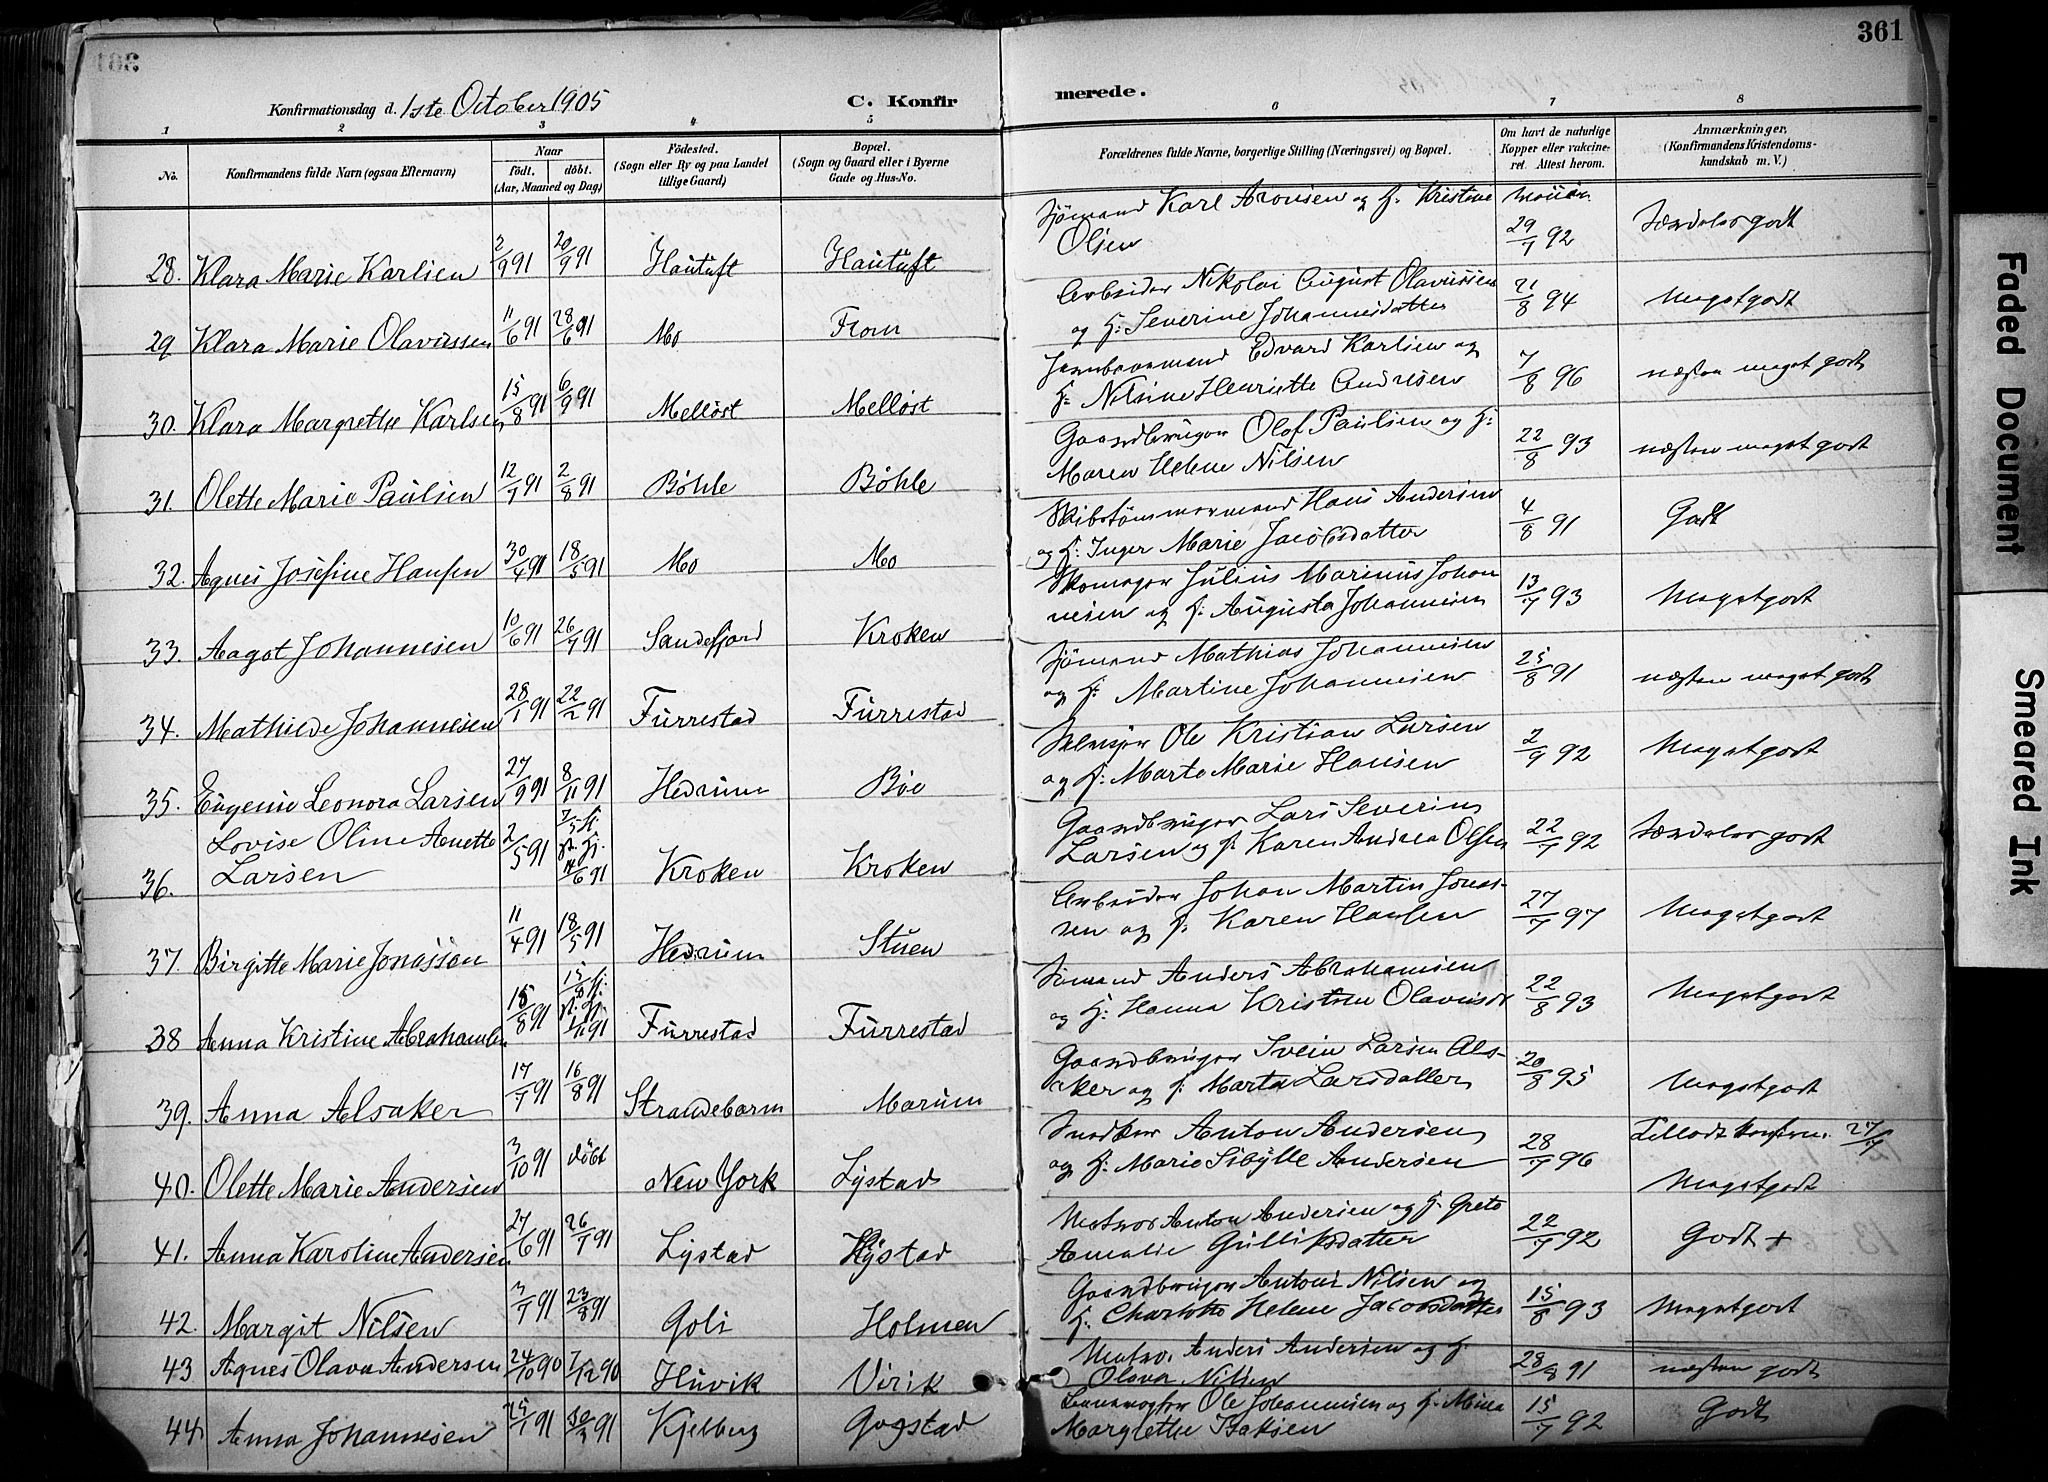 361
Konfirmationsdag d. 1ste October 1905
C. Konfir
merede.
1 2 3 4 5 6 7 8
No.
Konfirmandens fulde Navn (ogsaa Efternavn)
Naar
födt. döbt.
(Aar, Maaned og Dag)
Födested.
(Sogn eller By og paa Landet
tillige Gaard)
Bopæl.
(Sogn og Gaard eller i Byerne
Gade og Hus-No.
Forældrenes fulde Navne, borgerlige Stilling (Næringsvei) og Bopæl.
Om havt de naturlige
Kopper eller vakcine-
ret. Attest herom.
Anmærkninger.
(Konfirmandens Kristendoms-
kundskab m. V.)
28. Klara Marie Karlsen 2/9 91 20/9 91 Hautuft Hautuft
Sjömand Karl Aronsen og H. Kristine
Olsen
29/7 92 Særdeles godt
29 Klara Marie Olavussen 11/6 91 28/6 91 Mo From
Arbeider Nikolai August Olavussen
og H. Severine Johannesdatter
21/8 94 Megetgodt
30. Klara Margrethe Karlsen 15/8 91 6/9 91 Melløst Melløst
Jernbanemand Edvard Karlsen og
H. Nilsine Henriette Andresen
7/8 96 næsten meget godt
31. Olette Marie Paulsen 12/7 91 2/8 91 Bøhle Bøhle
Gaardbruger Olof Paulsen og H:
Maren Helene Nilsen
22/8 93 næsten meget godt
32. Agnes Josefine Hansen 30/4 91 18/5 91 Mo Mo
Skibstömmermand Hans Andersen
og H: Inger Marie Jacobsdatter
4/8 91 Godt
33. Aagot Johannesen 10/6 91 26/7 91 Sandefjord Kroken
Skomager Julius Marinus Johan
nesen og H. Augusta Johannesen
13/7 93 Megetgodt
34. Mathilde Johannesen 28/1 91 22/2 91 Furrestad Furrestad
Sjömand Mathias Johannesen
og H: Martine Johannesen
25/8 91 næsten meget godt
35. Eugenie Leonora Larsen 27/9 91 8/11 91 Hedrum Bøe
Selveier Ole Kristian Larsen
og H: Marte Marie Hansen
2/9 92 Megetgodt
36. Lovise Oline Anette
Larsen 2/5 91 14/6 91 Kroken Kroken
Gaardbruger Lars Severin
Larsen og H. Karen Andrea Olsen
22/7 92 Særdeles godt
37. Birgitte Marie Jonassen 11/4 91 18/5 91 Hedrum Stuen
Arbeider Johan Martin Jonas-
sen og H. Karen Hansen
27/7 97 Megetgodt
38 Anna Kristine Abrahamsen 15/8 91 Furrestad Furrestad
Sömand Anders Abrahamsen
og H: Hanna Kristine Olavusdt
22/8 93 Megetgodt
39. Anna Alsaker 17/7 91 16/8 91 Strandebarm Marum
Gaardbruger Svein Larsen Als-
aker og H. Marta Larsdatter
20/8 95 Megetgodt
40. Olette Marie Andersen 3/10 91 döbt New York Lystad
Snedker Anton Andersen
og H: Marie Sibylle Andersen
28/7 96 Megetgodt
41. Anna Karoline Andersen 27/6 91 26/7 91 Lystad Lystad
Matros Anton Andersen og H. Grete
Amalie Gulliksdatter
22/7 92 Godt +
42. Margit Nilsen 3/7 91 23/8 91 Goli Holmen
Gaardbruger Antoni Nilsen og
H. Charlotte Helene Jacobsdatter
15/8 93 Megetgodt
43 Agnes Olava Andersen 24/10 90 7/12 90 Huvik Virik
Matros Anders Andersen og H.
Olava Nilsen
28/8 91 næsten godt
44 Anna Johannesen Kjelberg Gogstad
Ole Johannesen og H. Mina
Margrethe Isaksen
15/7 92 Godt
Faded Document
Smeared Ink